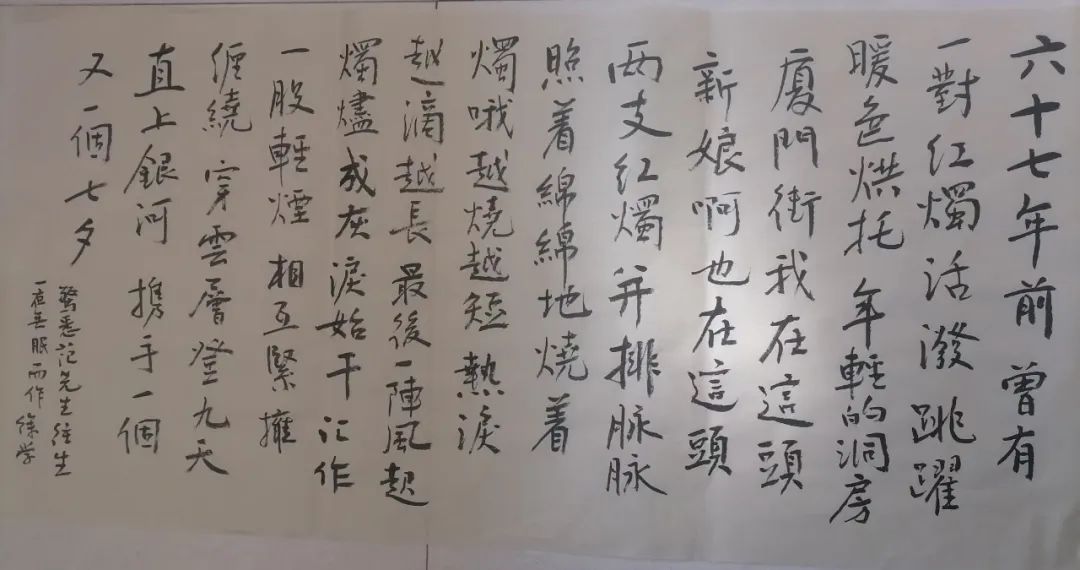 六十七年前 曾有
一對红燭活潑跳躍
暖色烘托 年輕的洞房
廈門街我在這頭
新娘啊也在這頭
两支红燭 并排脉脉
照着綿綿地燒着
燭哦越燒越短 熱淚
越滴越長 最後一陣風起
燭燼成灰淚始干 汇作
一股輕煙 相互緊擁
纏繞 穿雲層登九天
直上銀河 携手一個
又一個七夕
驚悉范先生往生
一夜無眠而作 徐学